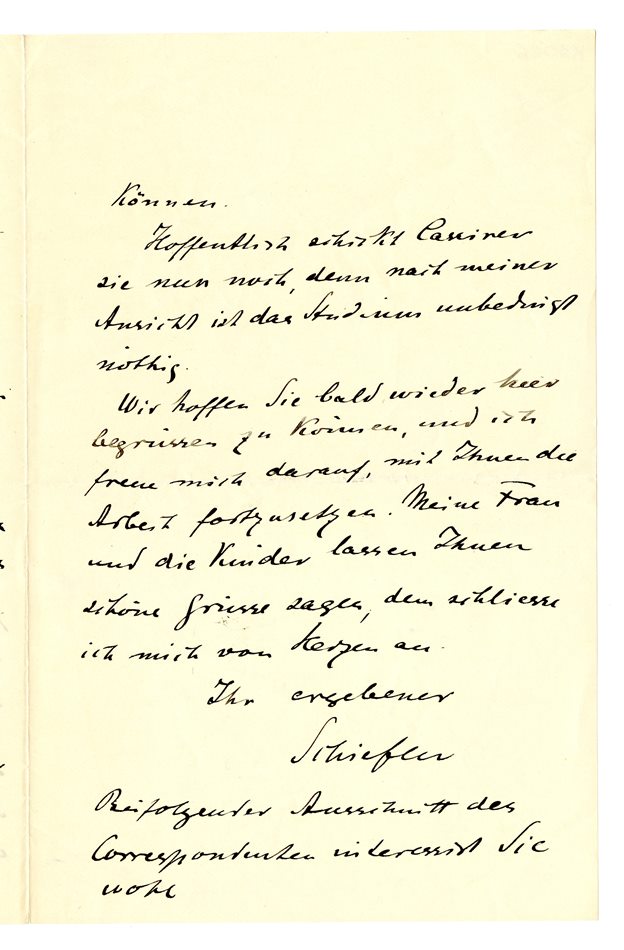 können.
Hoffentlich schickt Cassirer
sie nun noch, denn nach meiner
Ansicht ist das Studium unbedingt
nöthig.
Wir hoffen Sie bald wieder hier
begrüssen zu können, und ich
freue mich darauf, mit Ihnen die
Arbeit fortzusetzen. Meine Frau
und die Kinder lassen Ihnen
schöne Grüsse sagen, dem schliesse
ich mich von Herzen an.
Ihr ergebener
Schiefler
Beifolgender Ausschnitt des
Correspondenten interessirt Sie
wohl